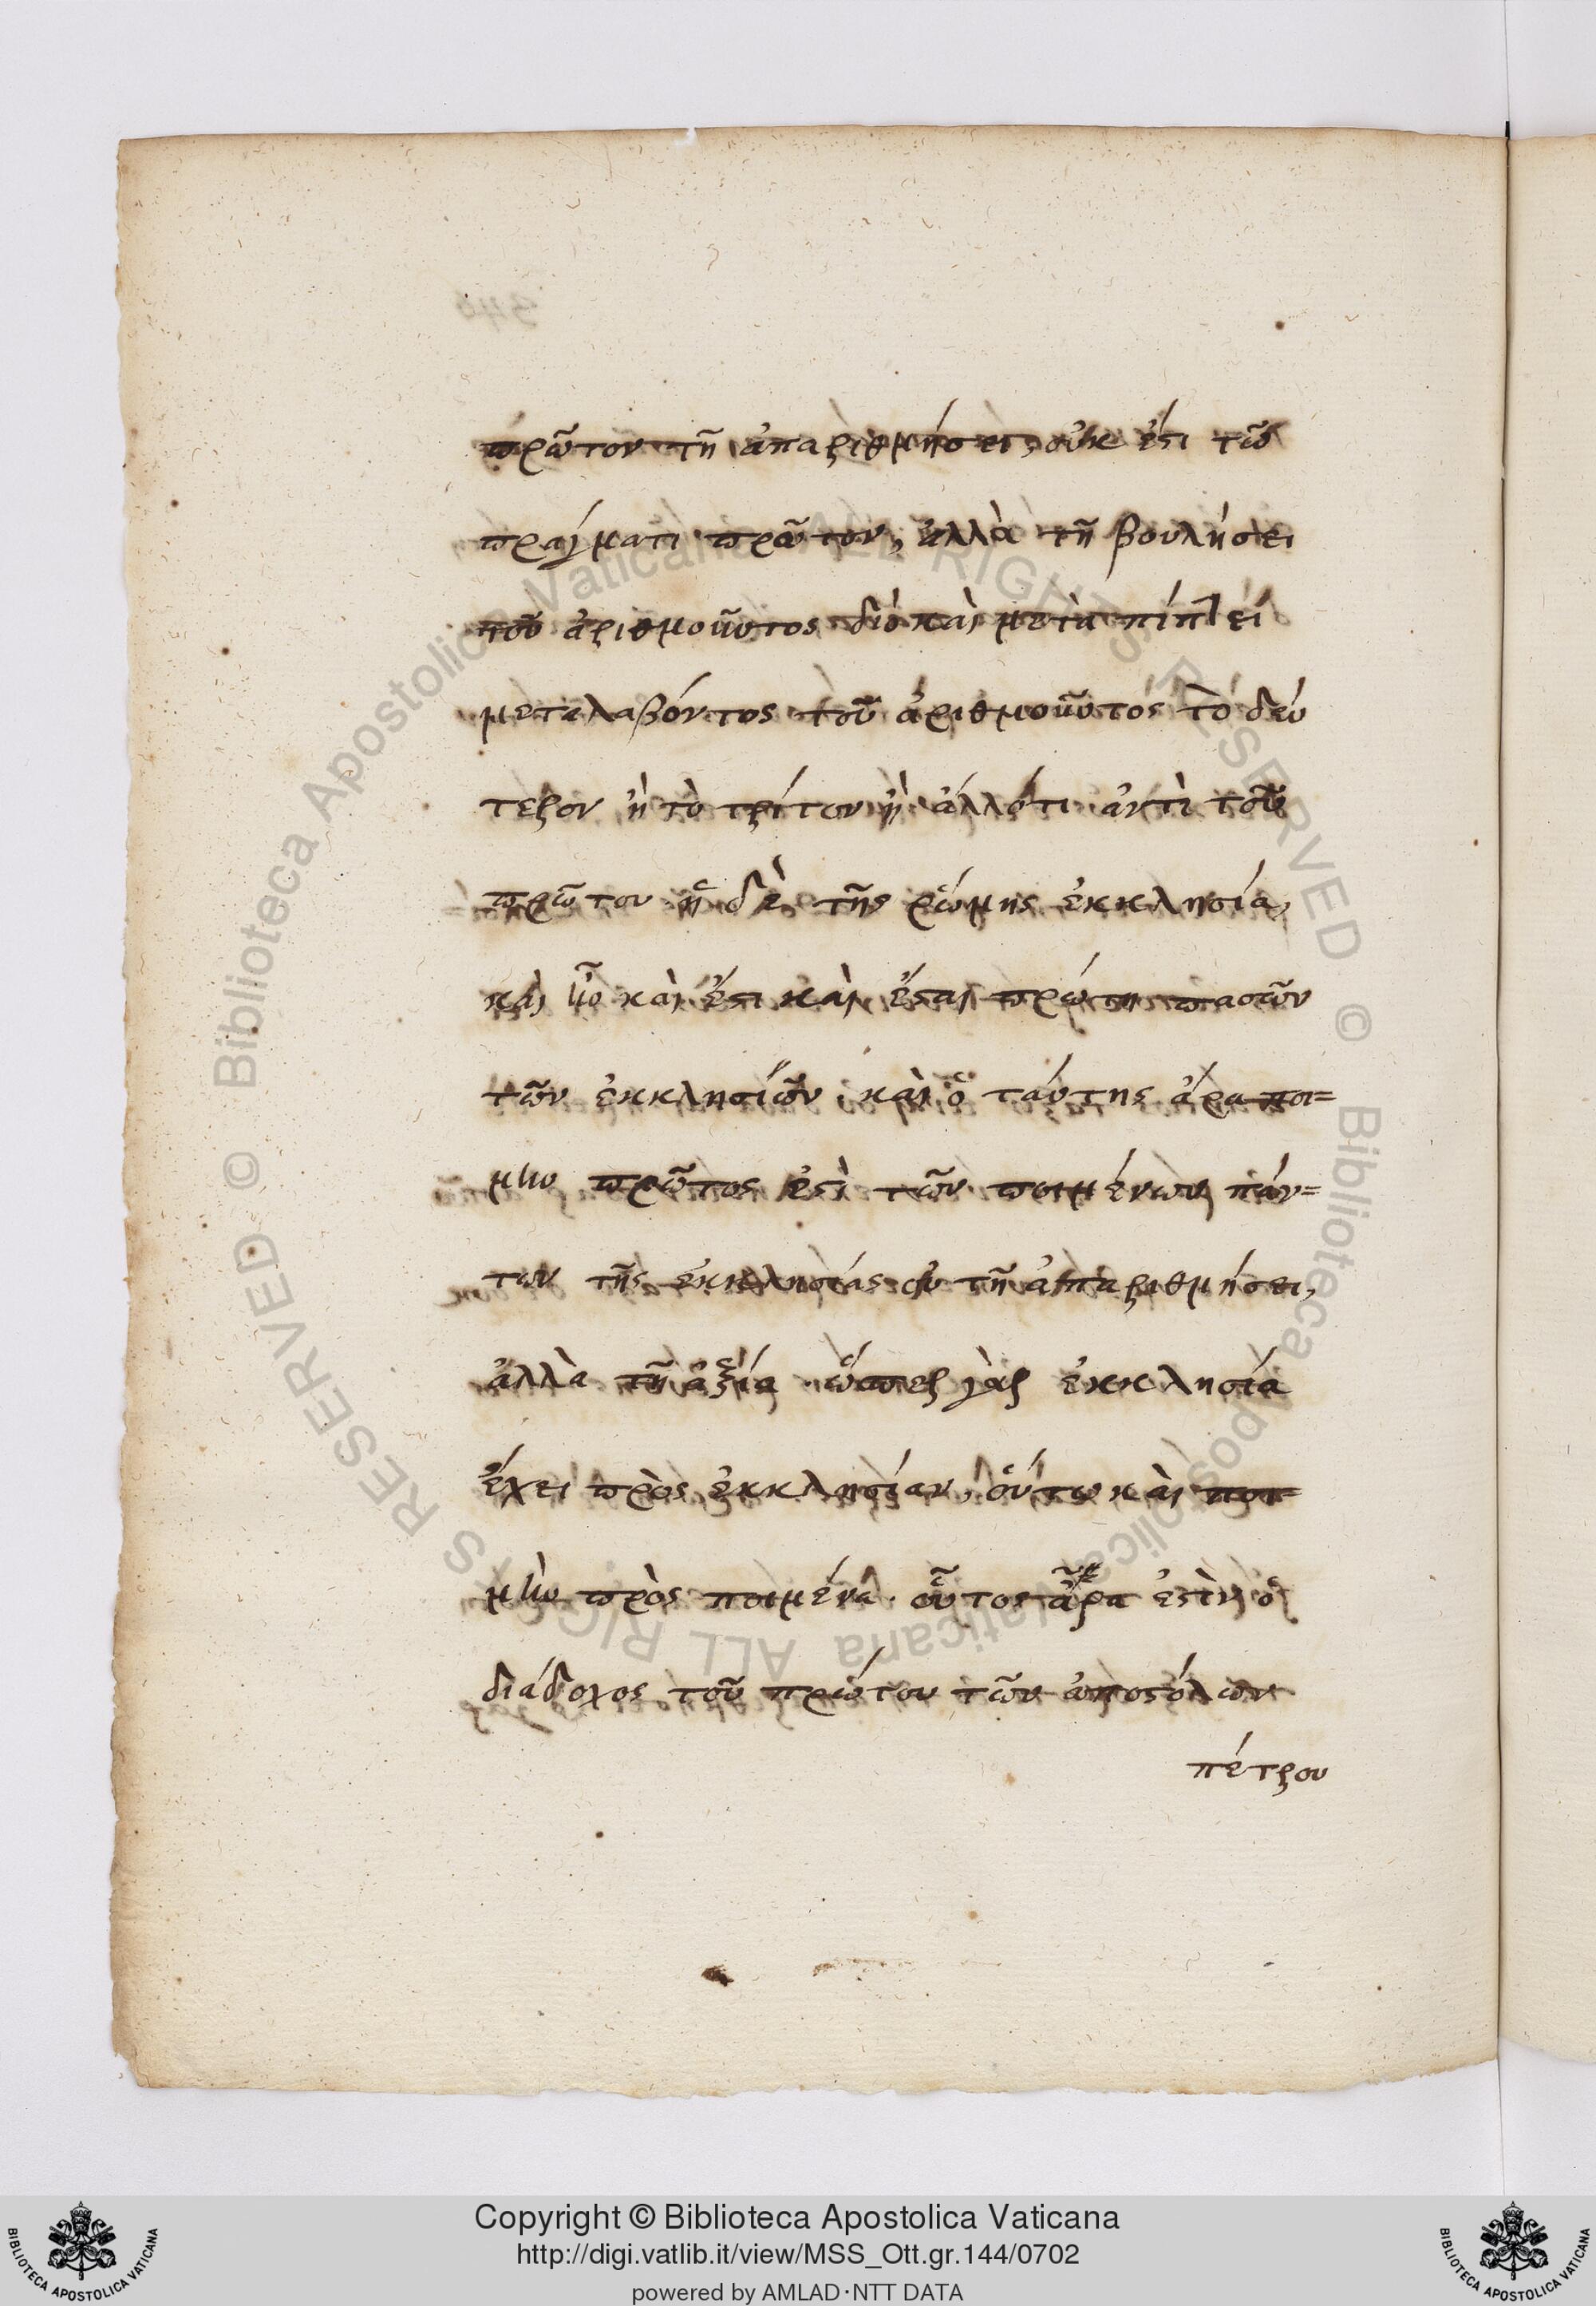 πρῶτον τῆ ἀπαριθμήσει, οὐκ ἔστι τῶ
πράγματι πρῶτον, ἀλλὰ τῆ βουλήσει
τοῦ ἀριθμοῦντος διὸ καὶ μεταπίπτει
μεταλαβόντος τοῦ ἀριθμοῦντός τὸ δεύ
τερον ἢ τὸ τρίτον ἢ ἄλλότι ἀντὶ τοῦ
πρῶτου ἡ δὲ τῆς ῥώμης ἐκκλησία,
καὶ ἦν καὶ ἔστι καὶ ἔσται πρώτη πασῶν
τῶν ἐκκλησιῶν· καὶ ὁ ταύτης ἄρα ποι=
μὴν πρῶτος ἐστὶ τῶν ποιμένων πάν=
των τῆς ἐκκλησίας οὐ τῆ ἀπαριθμήσει,
ἀλλὰ τῆ ἀξία· ὥσπερ γὰρ ἐκκλησία
ἔχει πρὸς ἐκκλησίαν, οὕτω καὶ ποι=
μὴν πρὸς ποιμένα· οὗτος ἆρα ἐστὶν ὁ
διάδοχος τοῦ πρώτου τῶν ἀποστόλων
πέτρου
Copyright © Biblioteca Apostolica Vaticana
http://digi.vatlib.it/view/MSS_Ott.gr.144/0702
powered by AMLAD·NTT DATA
BIBLIOTECA APOSTOLICA VATICANA
BIBLIOTECA APOSTOLICA VATICANA
© Biblioteca Apostolica Vaticana ALL RIGHTS RESERVED © Biblioteca Apostolica Vaticana ALL RIGHTS RESERVED